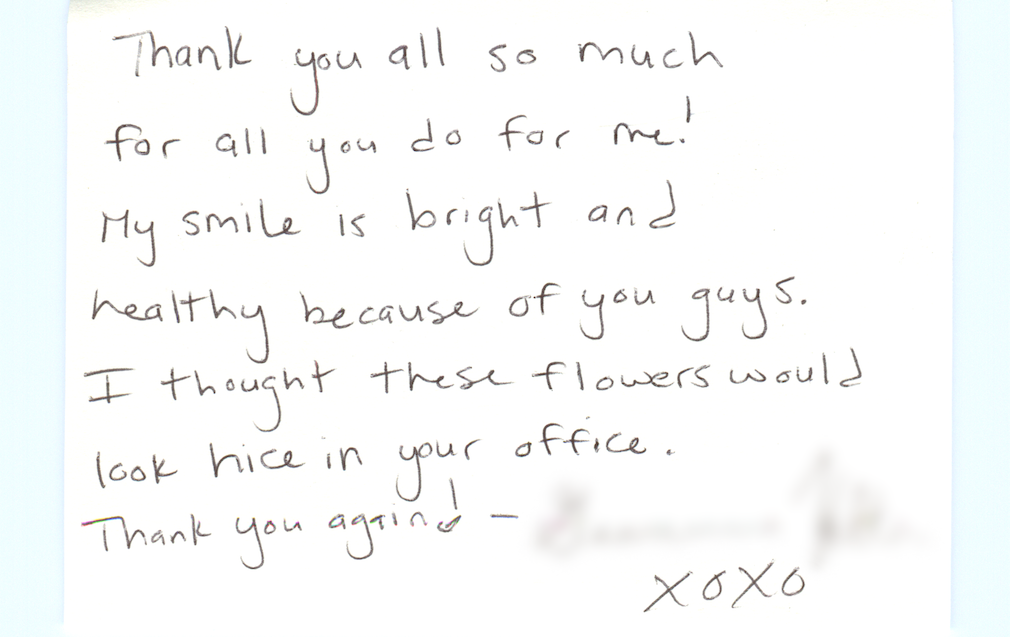 Thank you all so much
for all you do for me!
My smile is bright and
healthy because of you guys.
I thought these flowers would
look nice in your office.
Thank you again! -
xoxo